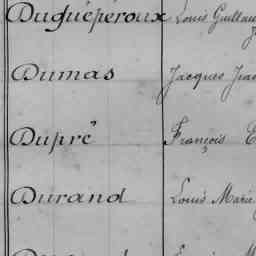 Duguéperoux Louis Guillau
Dumas Jacques Jea
Dupré François E
Durand Louis Marie